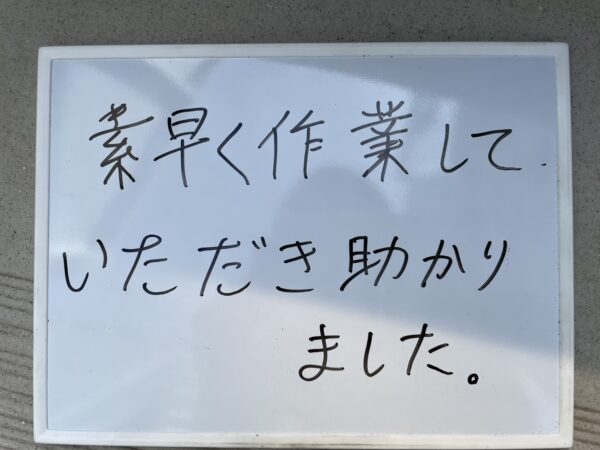 素早く作業して
いただき助かり
ました。